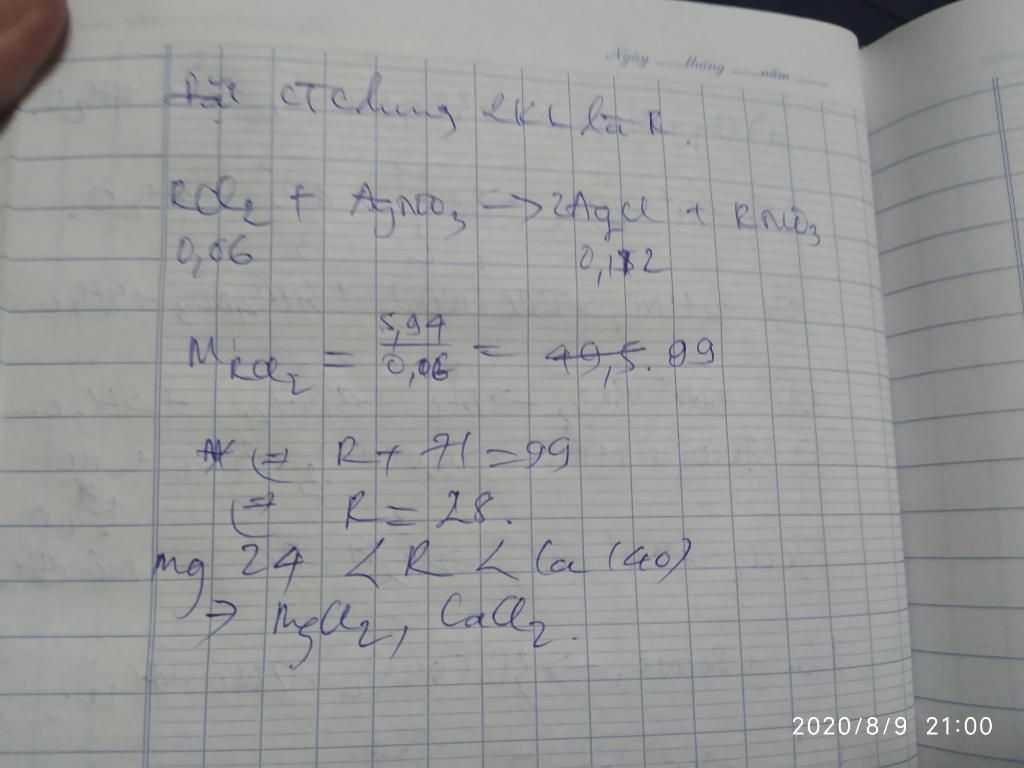 Ngày ...... tháng ...... năm ......
CT chung 2KL là R.
RCl2 + AgNO3 → 2AgCl + RNO3
0,06 0,12
MRCl2 = 5,94 / 0,06 = 49,5. 99
⇔ R + 71 = 99
⇔ R = 28.
Mg 24 < R < Ca (40)
→ MgCl2, CaCl2.
2020/8/9 21:00